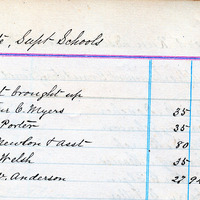 Supt Schools
t brought up
C. Myers 35
Porter 35
Newlon & asst 80
Welsh 35
Anderson 22